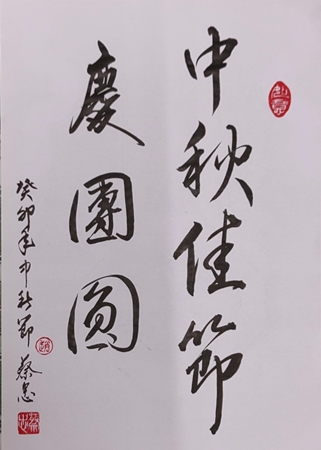 中秋佳節
慶團圓
癸卯年中秋節 蔡忠